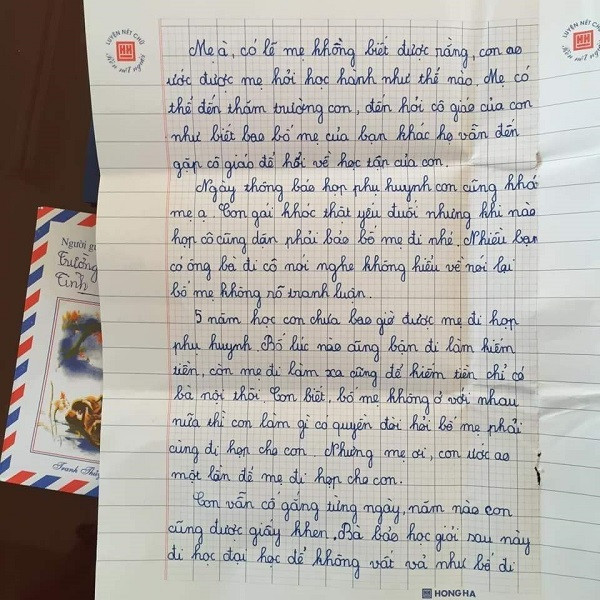 LUYỆN NÉT CHỮ
Mẹ à, có lẽ mẹ không biết được rằng, con ao
ước được mẹ hỏi học hành như thế nào. Mẹ có
thể đến thăm trường con, đến hỏi cô giáo của con
như biết bao bố mẹ của bạn khác họ vẫn đến
gặp cô giáo để hỏi về học tập của con.
Ngày thông báo họp phụ huynh con cũng khó
mẹ ạ. Con gái khóc thật yếu đuối nhưng khi nào
họp cô cũng dặn phải bảo bố mẹ đi nhé. Nhiều bạn
có ông bà đi cô nói nghe không hiểu về nói lại
bố mẹ không rõ tranh luận.
5 năm học con chưa bao giờ được mẹ đi họp
phụ huynh. Bố lúc nào cũng bận đi làm kiếm
tiền, còn mẹ đi làm xa cũng để kiếm tiền chỉ có
bà nội thôi. Con biết, bố mẹ không ở với nhau
nữa thì con làm gì có quyền đòi hỏi bố mẹ phải
cùng đi họp cho con. Nhưng mẹ ơi, con ước ao
một lần để mẹ đi họp cho con.
Con vẫn cố gắng từng ngày, năm nào con
cũng được giấy khen. Bà bảo học giỏi sau này
đi học đại học để không vất vả như bố đi
HONG HA
Người gử
Trường
Tình
Tranh Thủy